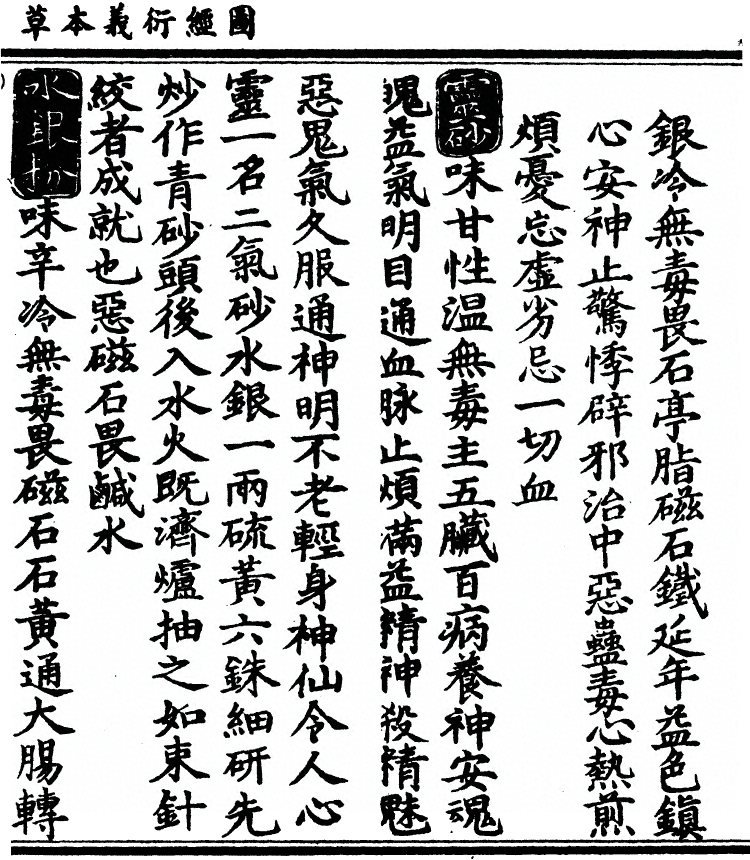 圖經衍義本草
銀冷無毒畏石亭脂磁石鐵延年益色鎮
心安神止驚悸辟邪治中惡蠱毒心熱煎
煩憂忘虛劣忌一切血
靈砂味甘性温無毒主五臟百病養神安魂
魄益氣明目通血脉止煩滿益精神殺精魅
惡鬼氣久服通神明不老輕身神仙令人心
靈一名二氣砂水銀一兩硫黃六銖細研先
炒作青砂頭後入水火既濟爐抽之如束針
絞者成就也惡磁石畏鹹水
水銀粉味辛冷無毒畏磁石石黃通大腸轉